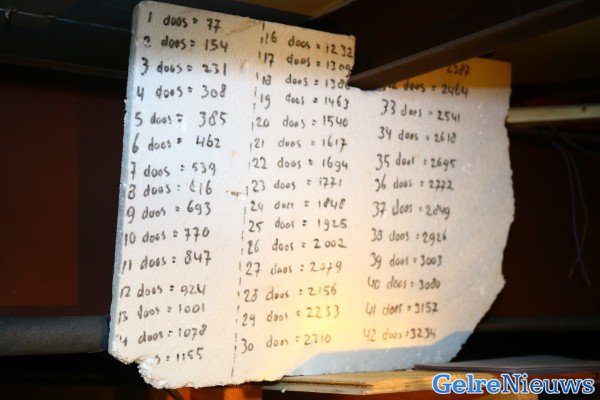 1 doos = 77
2 doos = 154
3 doos = 231
4 doos = 308
5 doos = 385
6 doos = 462
7 doos = 539
8 doos = 616
9 doos = 693
10 doos = 770
11 doos = 847
12 doos = 924
13 doos = 1001
14 doos = 1078
doos = 1155
16 doos = 1232
17 doos = 1309
18 doos = 1386
19 doos = 1463
20 doos = 1540
21 doos = 1617
22 doos = 1694
23 doos = 1771
24 doos = 1848
25 doos = 1925
26 doos = 2002
27 doos = 2079
28 doos = 2156
29 doos = 2233
30 doos = 2310
2387
32 doos = 2464
33 doos = 2541
34 doos = 2618
35 doos = 2695
36 doos = 2772
37 doos = 2849
38 doos = 2926
39 doos = 3003
40 doos = 3080
41 doos = 3152
42 doos = 3234
GelreNieuws